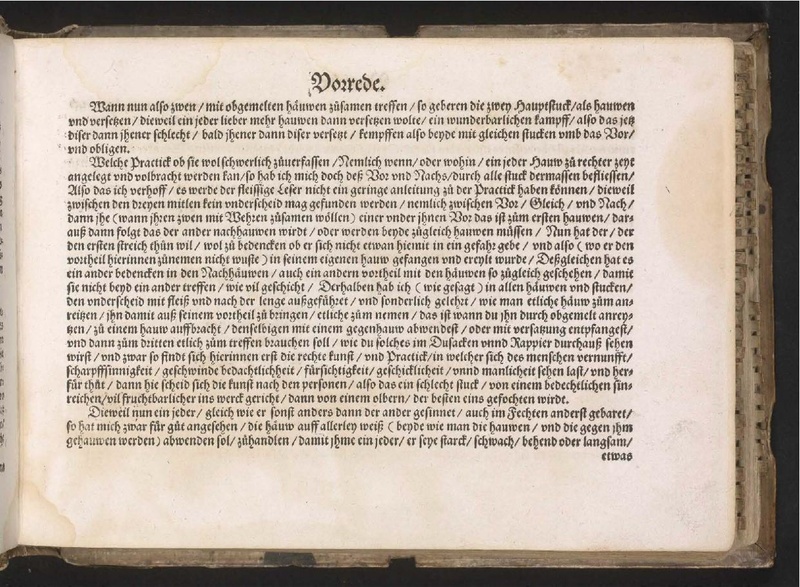 Vorrede.
Wann nun also zwen / mit obgemelten häuwen zůsamen treffen / so geberen die zwey Hauptstuck / als hauwen
vnd versetzen / dieweil ein jeder lieber mehr hauwen dann versetzen wolte / ein wunderbarlichen kampff / also das jetz
diser dann jhener schlecht / bald jhener dann diser versetzt / kempffen also beyde mit gleichen stucken vmb das Vor /
vnd obligen.
Welche Practick ob sie wol schwerlich zůuerfassen / Nemlich wenn / oder wohin / ein jeder Hauw zů rechter zeyt
angelegt vnd volbracht werden kan / so hab ich mich doch deß Vor vnd Nachs / durch alle stuck dermassen beflissen /
Also das ich verhoff / es werde der fleissige Leser nicht ein geringe anleitung zů der Practick haben können / dieweil
zwischen den dreyen mitlen kein vnderscheid mag gefunden werden / nemlich zwischen Vor / Gleich / vnd Nach /
dann jhe (wann jhren zwen mit Wehren zůsamen wöllen) einer vnder jhnen Vor das ist zům ersten hauwen / dar-
auß dann folgt das der ander nachhauwen wirdt / oder werden beyde zůgleich hauwen müssen / Nun hat der / der
den ersten streich thün wil / wol zů bedencken ob er sich nicht etwan hiemit in ein gefahr gebe / vnd also ( wo er den
vortheil hierinnen zůnemen nicht wuste ) in seinem eigenen hauw gefangen vnd ereylt wurde / Deßgleichen hat es
ein ander bedencken in den Nachhäuwen / auch ein andern vortheil mit den häuwen so zůgleich geschehen / damit
sie nicht beyd ein ander treffen / wie vil geschicht / Derhalben hab ich ( wie gesagt ) in allen häuwen vnd stucken /
den vnderscheid mit fleiß vnd nach der lenge außgeführet / vnd sonderlich gelehrt / wie man etliche häuw zům an-
reitzen / jhn damit auß seinem vortheil zů bringen / etliche zům nemen / das ist wann du jhn durch obgemelt anrey-
tzen / zů einem hauw auffbracht / denselbigen mit einem gegenhauw abwendest / oder mit versatzung entpfangest /
vnd dann zům dritten etlich zům treffen brauchen soll / wie du solches im Dusacken vnnd Rappier durchauß sehen
wirst / vnd zwar so findt sich hierinnen erst die rechte kunst / vnd Practick / in welcher sich des menschen vernunfft /
scharpffsinnigkeit / geschwinde bedachtlichheit / fürsichtigkeit / geschicklicheit / vnnd manlicheit sehen last / vnd her-
für thüt / dann hie scheid sich die kunst nach den personen / also das ein schlecht stuck / von einem bedechtlichen sin-
reichen / vil fruchtbarlicher ins werck gericht / dann von einem olbern / der besten eins gefochten wirdt.
Dieweil nun ein jeder / gleich wie er sonst anders dann der ander gesinnet / auch im Fechten anderst gebaret /
so hat mich zwar für güt angesehen / die häuw auff allerley weiß ( beyde wie man die hauwen / vnd die gegen jhm
gehauwen werden) abwenden sol / zůhandlen / damit jhme ein jeder / er seye starck / schwach / behend oder langsam /
etwas